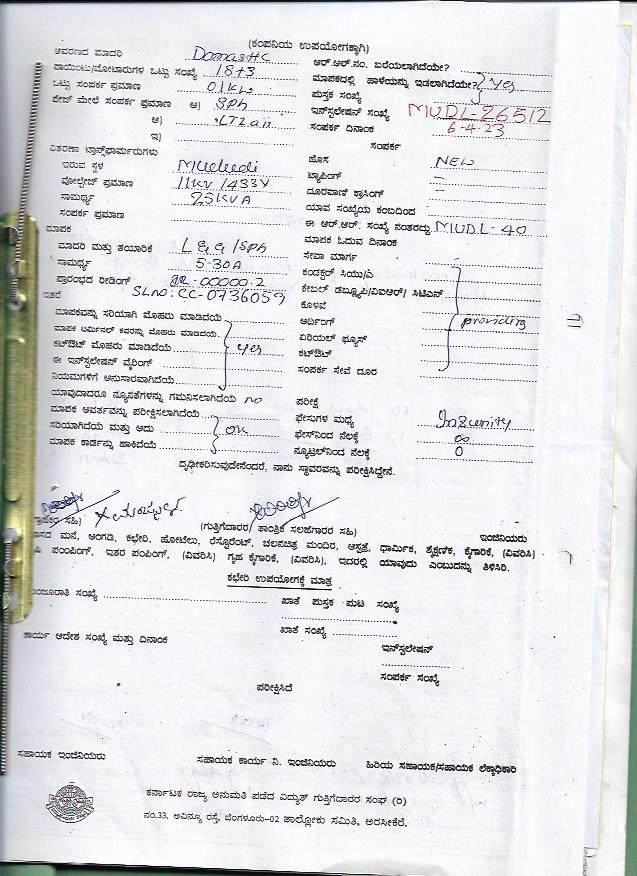 (ಕಂಪನಿಯ ಉಪಯೋಗಕ್ಕಾಗಿ)
ಆವರಣದ ಮಾದರಿ Domastic
ಪಾಯಿಂಟು/ಮೋಟಾರುಗಳ ಒಟ್ಟು ಸಂಖ್ಯೆ 18+3
ಒಟ್ಟು ಸಂಪರ್ಕ ಪ್ರಮಾಣ 01kw
ಪೇಜ್ ಮೇಲೆ ಸಂಪರ್ಕ ಪ್ರಮಾಣ ಅ) SPh
ಆ) LT2aii
ಇ)
ವಿತರಣಾ ಟ್ರಾನ್ಸ್‌ಫಾರ್ಮರುಗಳು
ಇರುವ ಸ್ಥಳ Mududi
ವೋಲ್ಟೇಜ್ ಪ್ರಮಾಣ 11KV/433V
ಸಾಮರ್ಥ್ಯ 25KVA
ಸಂಪರ್ಕ ಪ್ರಮಾಣ
ಮಾಪಕ
ಮಾದರಿ ಮತ್ತು ತಯಾರಿಕೆ L&G/SPh
ಸಾಮರ್ಥ್ಯ 5-30A
ಪ್ರಾರಂಭದ ರೀಡಿಂಗ್ 00000.2
ಇತರೆ SLno: CC-0736059
ಮಾಪಕವನ್ನು ಸರಿಯಾಗಿ ಮೊಹರು ಮಾಡಿದೆಯೆ
ಮಾಪಕ ಟರ್ಮಿನಲ್ ಕವರನ್ನು ಮೊಹರು ಮಾಡಿದೆಯೆ.
ಕಟ್‌ಔಟ್ ಮೊಹರು ಮಾಡಿದೆಯೆ yes
ಈ ಇನ್‌ಸ್ಟಲೇಷನ್ ವೈರಿಂಗ್
ನಿಯಮಗಳಿಗೆ ಅನುಸಾರವಾಗಿದೆಯೆ
ಯಾವುದಾದರೂ ನ್ಯೂನತೆಗಳನ್ನು ಗಮನಿಸಲಾಗಿದೆಯೆ no
ಮಾಪಕ ಆವರ್ತವನ್ನು ಪರೀಕ್ಷಿಸಲಾಗಿದೆಯೆ
ಸರಿಯಾಗಿದೆಯೆ ಮತ್ತು ಅದು OK
ಮಾಪಕ ಕಾರ್ಡನ್ನು ಹಾಕಿದೆಯೆ
ಆರ್.ಆರ್.ನಂ. ಬರೆಯಲಾಗಿದೆಯೇ?
ಮಾಪಕದಲ್ಲಿ ಹಾಳೆಯನ್ನು ಇಡಲಾಗಿದೆಯೇ? yes
ಪುಸ್ತಕ ಸಂಖ್ಯೆ
ಇನ್‌ಸ್ಟಲೇಷನ್ ಸಂಖ್ಯೆ MUDL-26512
ಸಂಪರ್ಕ ದಿನಾಂಕ 6-4-23
ಸಂಪರ್ಕ
ಹೊಸ NEW
ಟ್ಯಾಪಿಂಗ್ –
ದೂರವಾಣಿ ಕ್ರಾಸಿಂಗ್ –
ಯಾವ ಸಂಖ್ಯೆಯ ಕಂಬದಿಂದ
ಈ ಆರ್.ಆರ್. ಸಂಖ್ಯೆ ನಂತರದ್ದು MUDL-40
ಮಾಪಕ ಓದುವ ದಿನಾಂಕ
ಸೇವಾ ಮಾರ್ಗ
ಕಂಡಕ್ಟರ್ ಸಿಯು/ಎ
ಕೇಬಲ್ ಡಬ್ಲ್ಯೂಪಿ/ವಿಐಆರ್/ ಸಿಟಿಎಸ್
ಕೊಳವೆ
ಅರ್ಥಿಂಗ್ providing
ಏರಿಯಲ್ ಫ್ಯೂಸ್
ಕಟ್‌ಔಟ್
ಸಂಪರ್ಕ ಸೇವೆ ದೂರ
ಪರೀಕ್ಷೆ
ಫೇಸುಗಳ ಮಧ್ಯೆ
ಫೇಸ್‌ನಿಂದ ನೆಲಕ್ಕೆ ∞
ನ್ಯೂಟ್ರಲ್‌ನಿಂದ ನೆಲಕ್ಕೆ 0
ದೃಢೀಕರಿಸುವುದೇನೆಂದರೆ, ನಾನು ಸ್ಥಾವರವನ್ನು ಪರೀಕ್ಷಿಸಿದ್ದೇನೆ.
ಸಹಿ) (ಗುತ್ತಿಗೆದಾರರ/ ತಾಂತ್ರಿಕ ಸಲಹೆಗಾರರ ಸಹಿ) ಇಂಜಿನಿಯರು
ಮನೆ, ಅಂಗಡಿ, ಕಛೇರಿ, ಹೋಟೆಲು, ರೆಸ್ಟೋರೆಂಟ್, ಚಲನಚಿತ್ರ ಮಂದಿರ, ಆಸ್ಪತ್ರೆ, ಧಾರ್ಮಿಕ, ಶೈಕ್ಷಣಿಕ, ಕೈಗಾರಿಕೆ, (ವಿವರಿಸಿ)
ಪಂಪಿಂಗ್, ಇತರ ಪಂಪಿಂಗ್, (ವಿವರಿಸಿ) ಗೃಹ ಕೈಗಾರಿಕೆ, (ವಿವರಿಸಿ), ಇದರಲ್ಲಿ ಯಾವುದು ಎಂಬುದನ್ನು ತಿಳಿಸಿರಿ.
ಕಛೇರಿ ಉಪಯೋಗಕ್ಕೆ ಮಾತ್ರ
ಸಂಖ್ಯೆ ಖಾತೆ ಪುಸ್ತಕ ಪುಟ ಸಂಖ್ಯೆ
ಕಾರ್ಯ ಆದೇಶ ಸಂಖ್ಯೆ ಮತ್ತು ದಿನಾಂಕ ಖಾತೆ ಸಂಖ್ಯೆ
ಇನ್‌ಸ್ಟಲೇಷನ್
ಸಂಪರ್ಕ ಸಂಖ್ಯೆ
ಪರೀಕ್ಷಿಸಿದೆ
ಸಹಾಯಕ ಇಂಜಿನಿಯರು ಸಹಾಯಕ ಕಾರ್ಯ ನಿ. ಇಂಜಿನಿಯರು ಹಿರಿಯ ಸಹಾಯಕ/ಸಹಾಯಕ ಲೆಕ್ಕಾಧಿಕಾರಿ
ಕರ್ನಾಟಕ ರಾಜ್ಯ ಅನುಮತಿ ಪಡೆದ ವಿದ್ಯುತ್ ಗುತ್ತಿಗೆದಾರರ ಸಂಘ (ರಿ)
ನಂ.33, ಅವಿನ್ಯೂ ರಸ್ತೆ, ಬೆಂಗಳೂರು-02 ತಾಲ್ಲೋಕು ಸಮಿತಿ, ಅರಸೀಕೆರೆ.